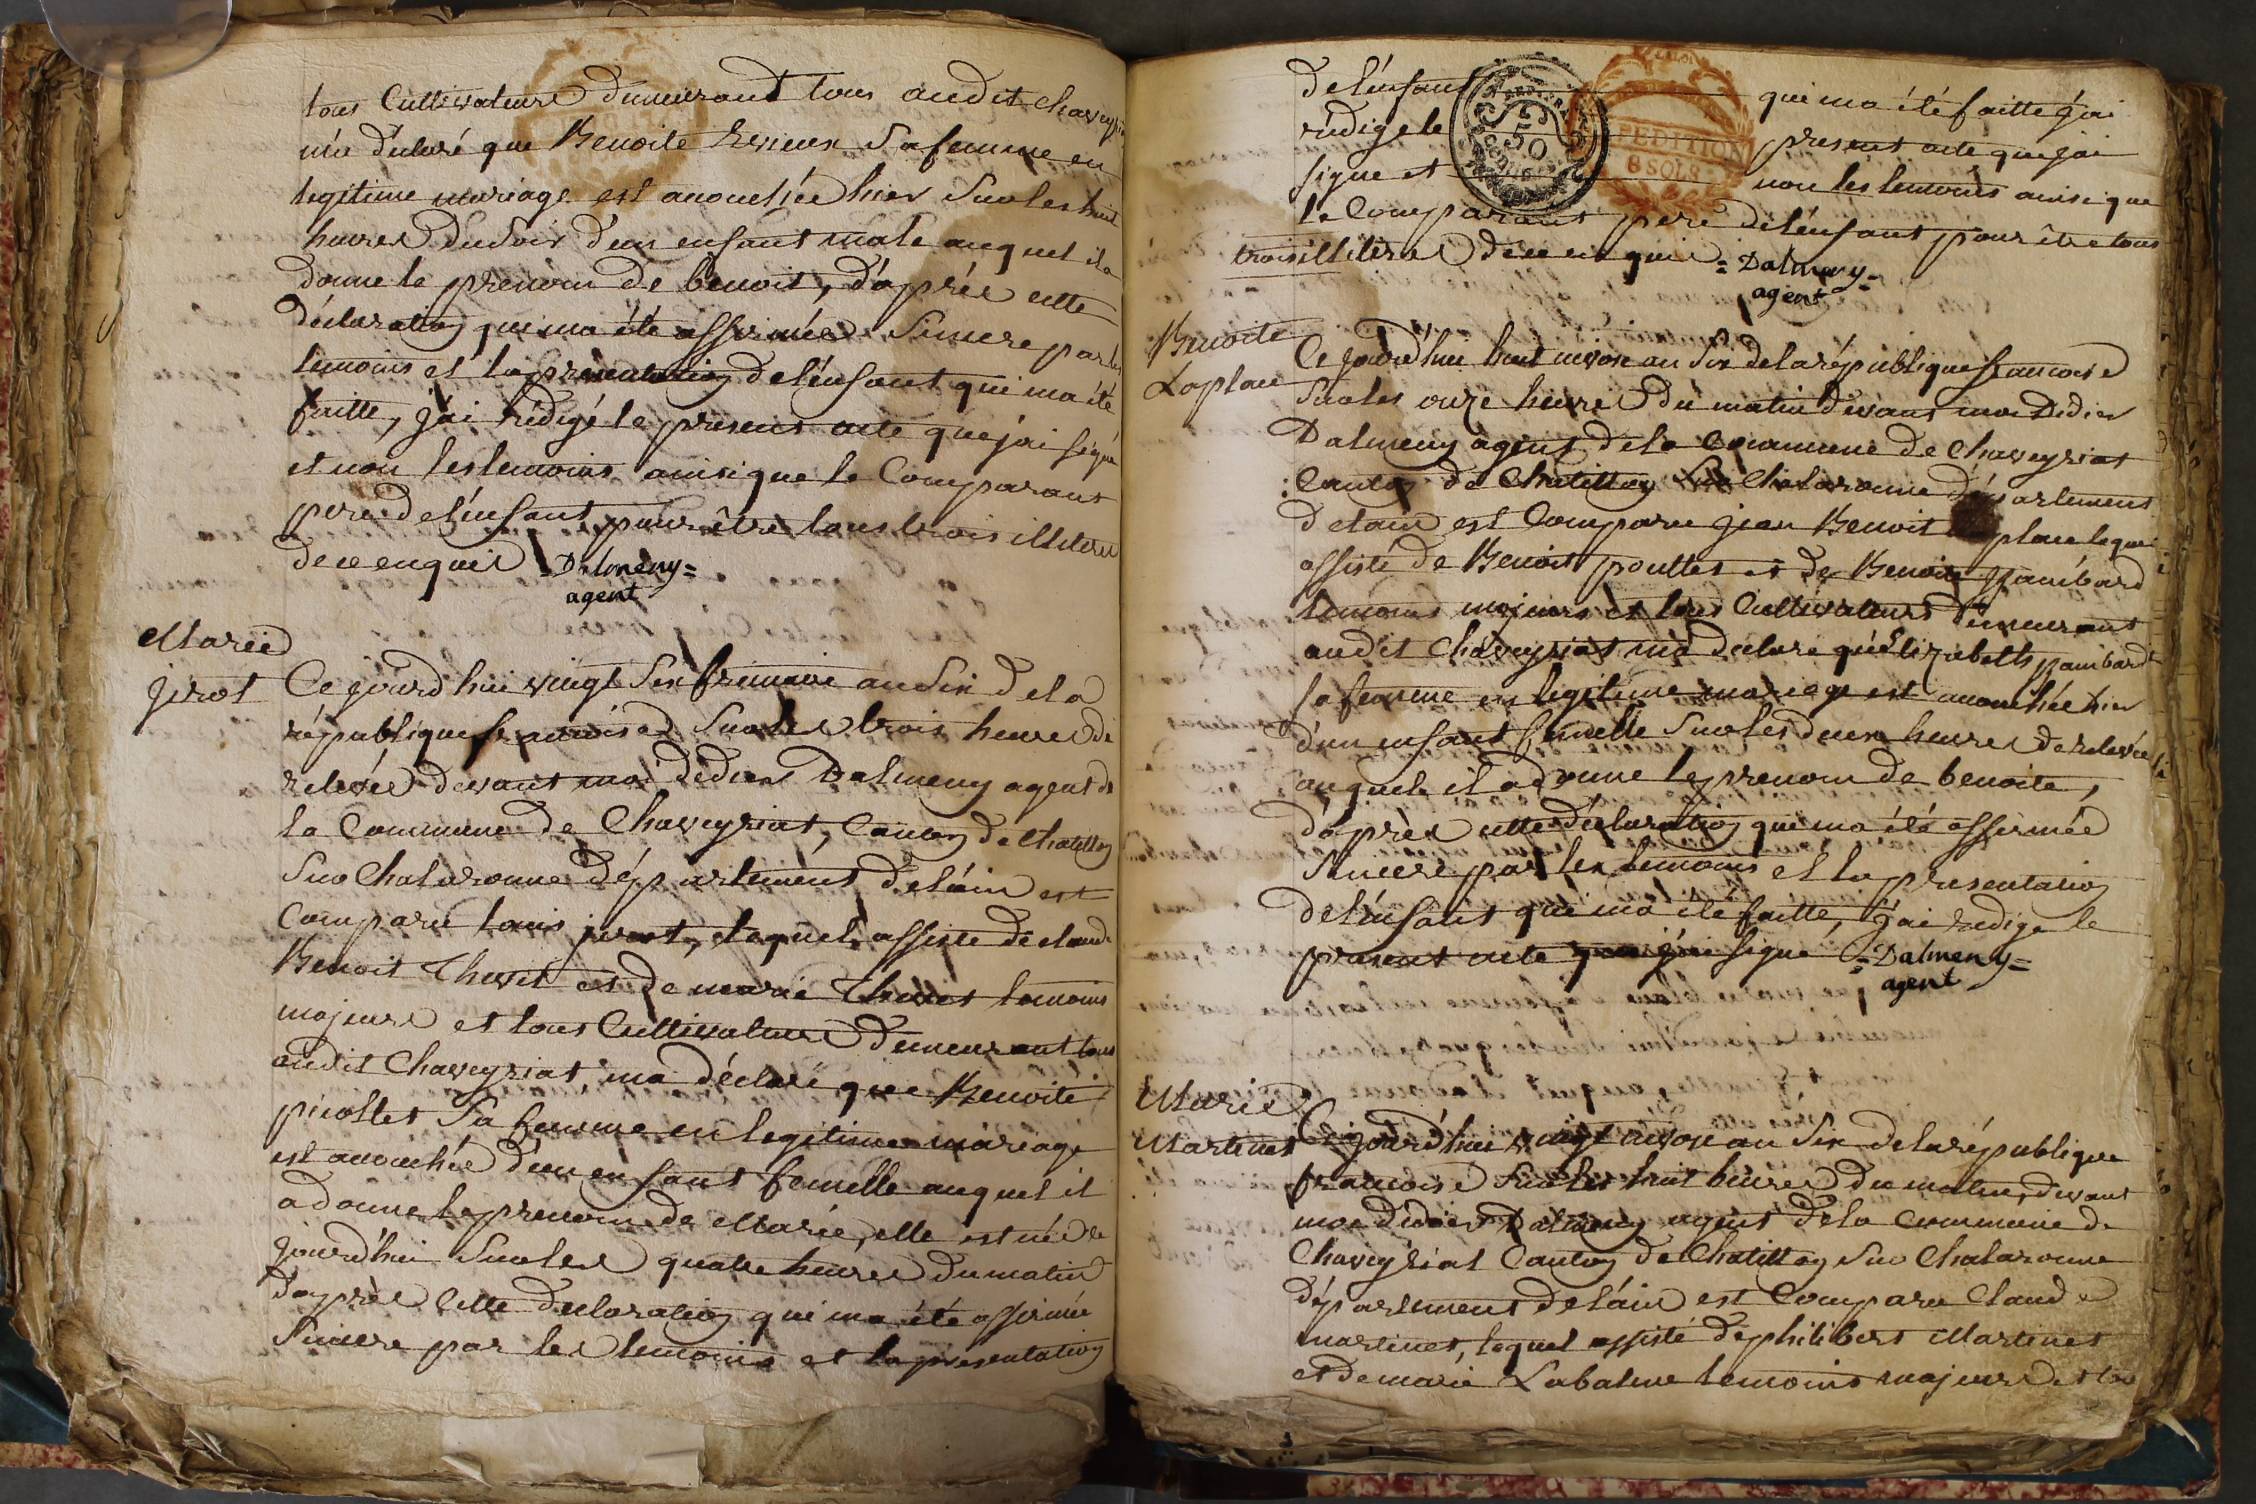 tous Cultivateurs demeurant tous audit chaveyriat
m'a déclaré que Benoite Revieux Sa femme en
legitime mariage est accouchée hier Sur les huit
heures du Soir d'un enfant male auquel il a
donné le prenom de benoit, d'après cette
déclaration qui ma été affirmée Sincere par les
temoins et la presentation de l'enfant qui ma été
faitte, j'ai rédigé le present acte que j'ai signé
et non les temoins ainsi que le Comparant
pere de l'enfant pour être tous trois illiteres
de ce enquis = Dalmeny =
agent
Marie
jirot
Ce jourd'hui vingt Six frimaire an Six de la
république francoise Sur les trois heures de
relevée devant moi didier Dalmeny agent de
la Commune de Chaveyriat, Canton de Chatillon
Sur Chalaronne département de l'ain est
Comparu louis jirot, lequel assisté de claude
Benoit Thevet et de marie Thevet temoins
majeurs et tous Cultivateurs demeurant tous
audit Chaveyriat, ma déclaré que Benoite
picollet Sa femme en legitime mariage
est accouchée d'un enfant femelle auquel il
a donné le prenom de Marie, elle est née ce
jourd'hui Sur les quatre heures du matin
d'après Cette declaration qui ma été affirmée
Sincere par les temoins et la presentation
de l'enfant qui ma été faitte j'ai
rédigé le present acte que j'ai
signé et non les temoins ainsi que
le Comparant pere de l'enfant pour être tous
trois illiteres de ce enquis = Dalmeny =
agent
Benoite
Laplace
Ce jourd'hui huit nivose an Six de la république francoise
Sur les onze heures du matin devant moi Didier
Dalmeny agent de la Commune de Chaveyriat
Canton de Chatillon Sur Chalaronne département
de lain est Comparu jean Benoit place lequel
assisté de Benoit pouttet et de Benoite pambard
temoins majeurs et tous Cultivateurs demeurant
audit Chaveyriat m'a declaré qu'Elizabeth pambard
sa femme en legitime mariage est accouchée hier
d'un enfant femelle Sur les deux heures de relevée
auquel il a donné le prenom de benoite,
d'après cette déclaration qui ma été affirmée
Sincere par les temoins et la presentation
de l'enfant qui ma été faitte, j'ai redigé le
present acte que j'ai signé = Dalmeny =
agent
Marie
Martinet
Ce jourd'hui vingt nivose an Six de la république
francoise Sur les huit heures du matin, devant
moi didier Dalmeny agent de la Commune de
Chaveyriat Canton de Chatillon Sur Chalaronne
département de l'ain est Comparu Claude
martinet, lequel assisté de philibert Martinet
et de marie Labalme temoins majeurs et tous